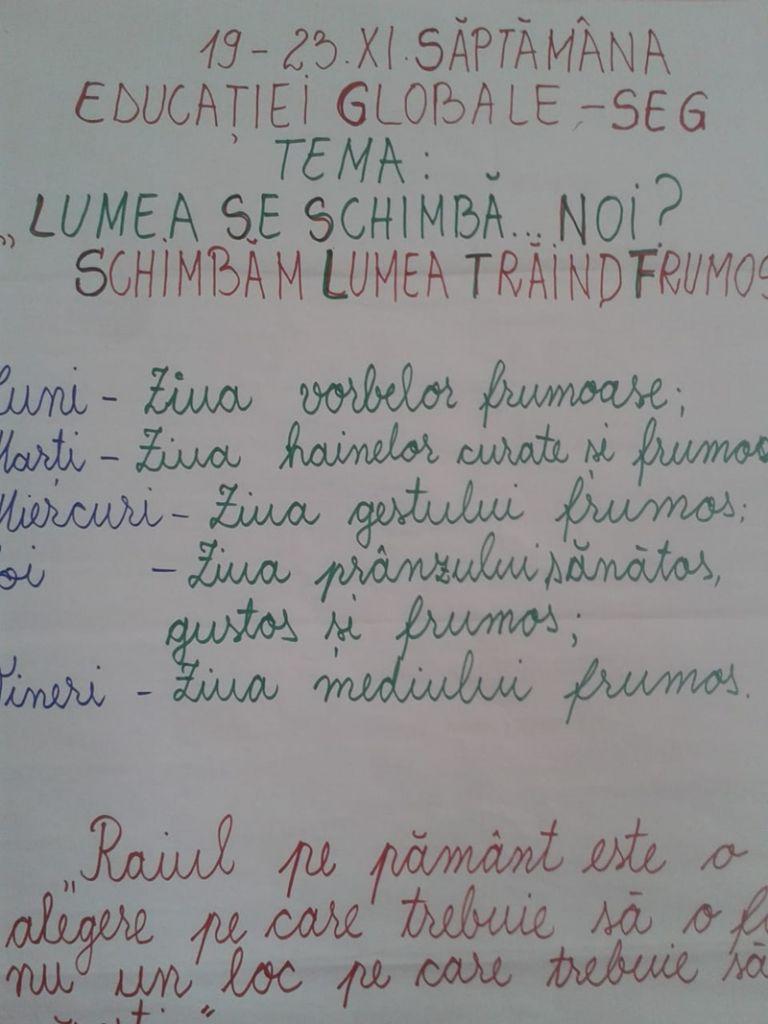 19-23.XI. SĂPTĂMÂNA
EDUCAȚIEI GLOBALE,-SEG
TEMA:
„LUMEA SE SCHIMBĂ... NOI?
SCHIMBĂM LUMEA TRĂIND FRUMOS
Luni - Ziua vorbelor frumoase;
Marți - Ziua hainelor curate și frumoa
Miercuri - Ziua gestului frumos;
Joi - Ziua prânzului sănătos,
gustos și frumos;
Vineri - Ziua mediului frumos.
„Raiul pe pământ este o
alegere pe care trebuie să o f
nu un loc pe care trebuie să